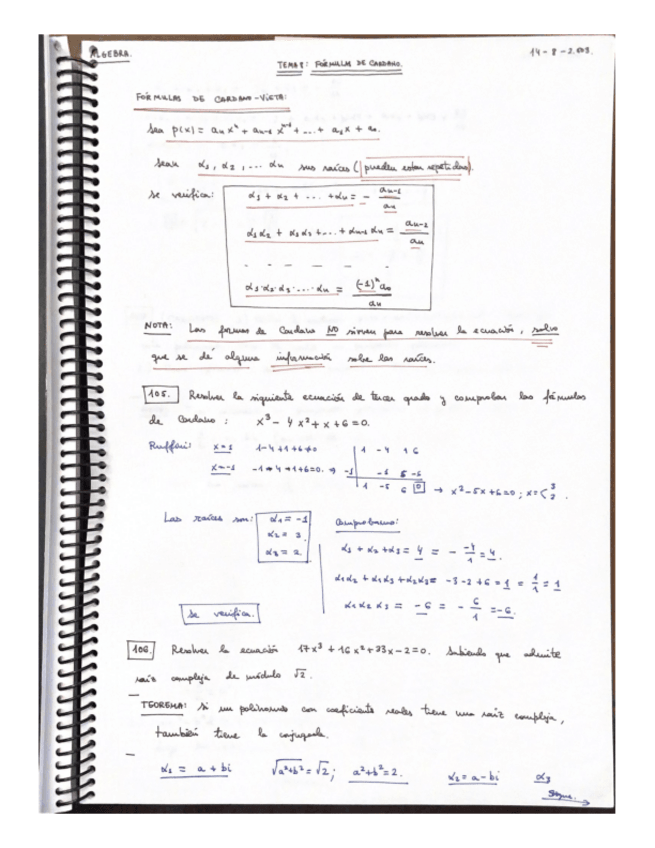 ALGEBRA.
14-8-2.003.
TEMA 8: FÓRMULAS DE CARDANO.
FÓRMULAS DE CARDANO-VIETA:
Sea p(x) = aₙxⁿ + aₙ₋₁xⁿ⁻¹ + ... + a₁x + a₀.
Sean α₁, α₂, ... αₙ sus raíces (pueden estar repetidas).
Se verifica: α₁ + α₂ + .... + αₙ = - aₙ₋₁/aₙ
α₁α₂ + α₁α₃ + ... + αₙ₋₁αₙ = aₙ₋₂/aₙ
- - - - - -
α₁·α₂·α₃· ... · αₙ = (-1)ⁿa₀/aₙ
NOTA: Las formas de Cardano NO sirven para resolver la ecuación, salvo
que se dé alguna información sobre las raíces.
105. Resolver la siguiente ecuación de tercer grado y comprobar las fórmulas
de Cardano: x³ - 4x² + x + 6 = 0.
Ruffini: x=1 1-4+1+6≠0 1 -4 1 6
x=-1 -1-4-1+6=0. ⇒ -1 -1 5 -6
1 -5 6 0 → x²-5x+6=0; x=< 3 2.
Las raíces son: α₁ = -1 Comprobamos:
α₂ = 3
α₃ = 2
α₁ + α₂ + α₃ = 4 = - -4/1 = 4.
α₁α₂ + α₁α₃ + α₂α₃ = -3-2+6 = 1 = 1/1 = 1
α₁α₂α₃ = -6 = - 6/1 = -6.
Se verifica.
106. Resolver la ecuación 17x³ + 16x² + 33x - 2 = 0. Sabiendo que admite
raíz compleja de módulo √2.
TEOREMA: Si un polinomio con coeficientes reales tiene una raíz compleja,
también tiene la conjugada.
α₁ = a + bi √a²+b² = √2; a²+b² = 2. α₂ = a - bi α₃
Sigue.